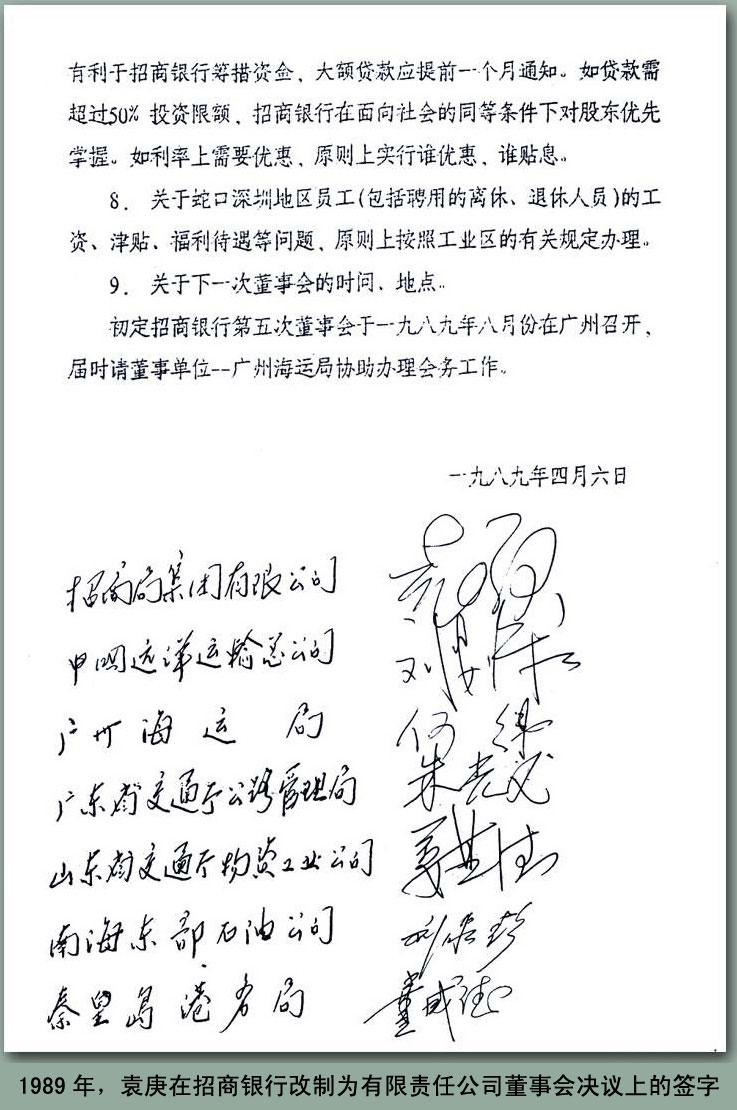 有利于招商银行筹措资金、大额贷款应提前一个月通知。如贷款需
超过50%投资限额、招商银行在面向社会的同等条件下对股东优先
掌握。如利率上需要优惠、原则上实行谁优惠、谁贴息。
8. 关于蛇口深圳地区员工(包括聘用的离休、退休人员)的工
资、津贴、福利待遇等问题、原则上按照工业区的有关规定办理。
9. 关于下一次董事会的时间、地点。
初定招商银行第五次董事会于一九八九年八月份在广州召开、
届时请董事单位--广州海运局协助办理会务工作。
一九八九年四月六日
招商局集团有限公司 袁庚
中国远洋运输总公司
广州海运局
广东省交通厅公路管理局
山东省交通厅物资工业公司
南海东部石油公司
秦皇岛港务局
1989 年，袁庚在招商银行改制为有限责任公司董事会决议上的签字